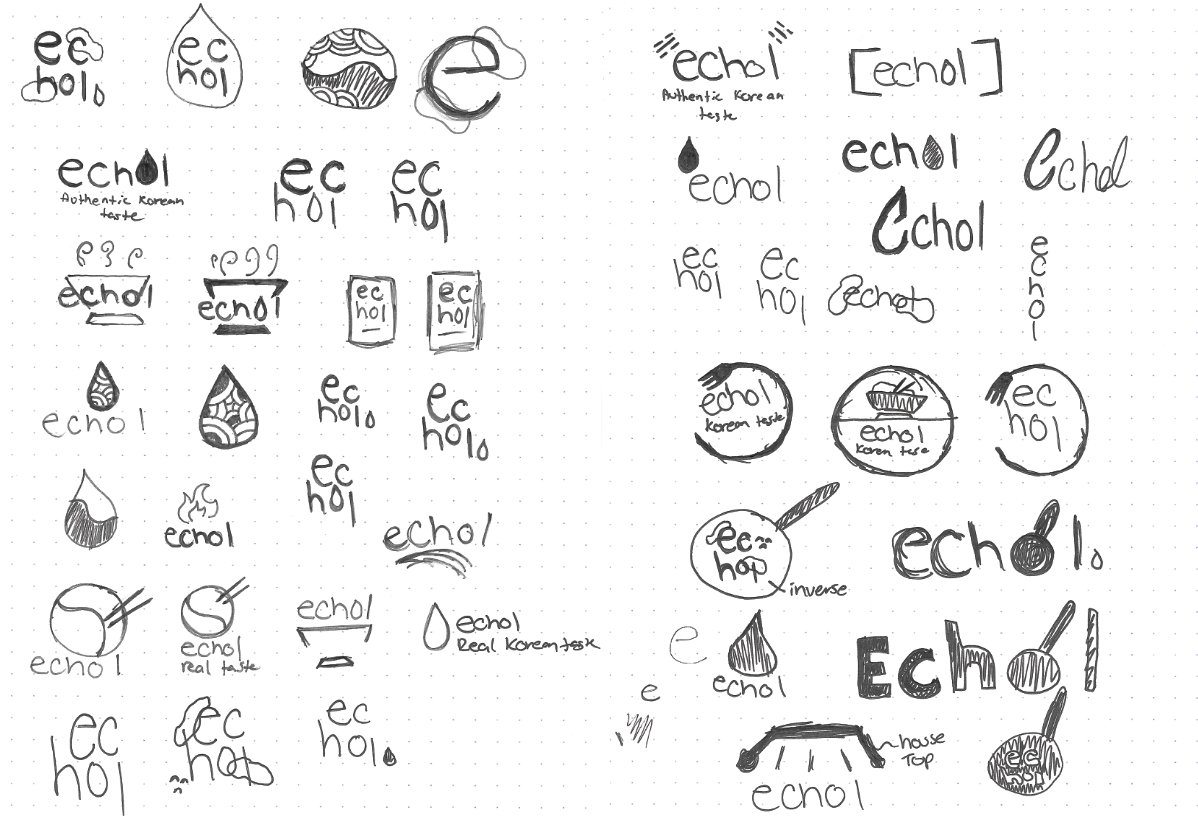 ec
hol
ec
hol
e
echol
Authentic Korean
taste
ec
hol
ec
hol
echol
echol
ec
hol
ec
hol
echol
ec
hol
ec
hol
ec
hol
echol
echol
echol
echol
Real taste
echol
echol
Real Korean taste
ec
hol
ec
hol
ec
hol
echol
Authentic Korean
taste
[echol]
echol
echol
echol
echol
ec
hol
ec
hol
echol
echol
echol
Korean taste
echol
Korean tase
ec
hol
ec
hop
inverse
echol
e
echol
Echol
e
house
Top
echol
ec
hop